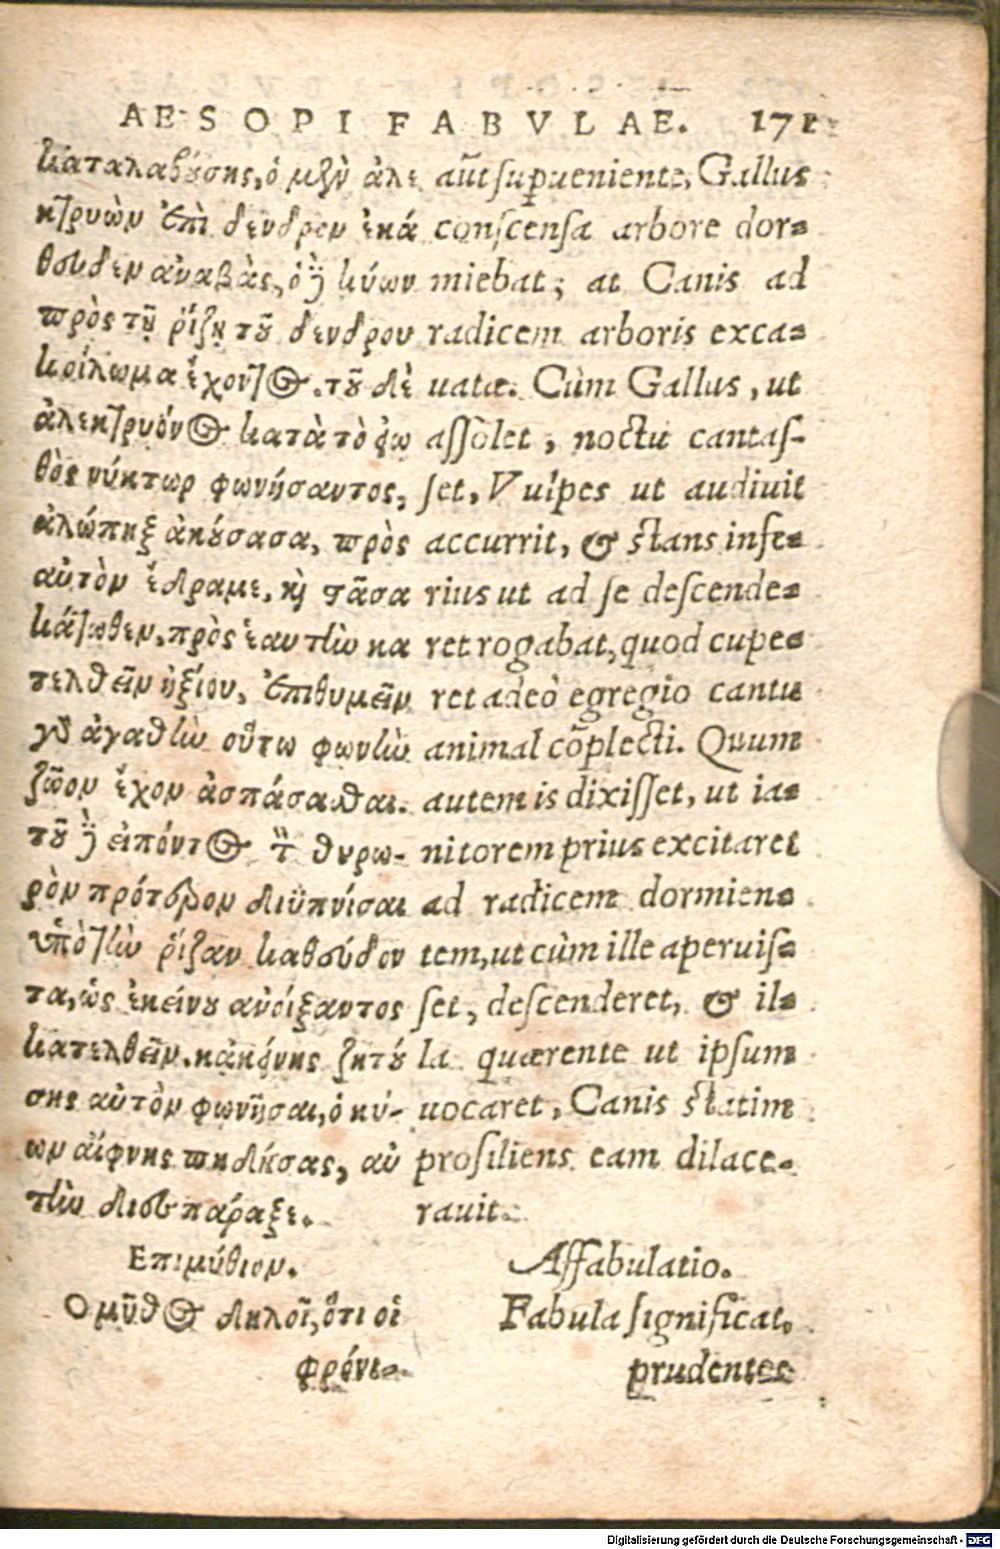 AESOPI FABVLAE. 171
καταλαβούσης, ὁ μὲν ἀλε
κτρυὼν ἐπὶ δένδρον ἐκά
θευδεν ἀναβὰς, ὁ δὲ κύων
πρὸς τῇ ῥίζῃ τοῦ δένδρου
κοίλωμα ἔχοντος. τοῦ δὲ
ἀλεκτρυόνος κατὰ τὸ εἰω
θὸς νύκτωρ φωνήσαντος,
ἀλώπηξ ἀκούσασα, πρὸς
αὐτὸν ἔδραμε, καὶ στᾶσα
κάτωθεν, πρὸς ἑαυτὴν κα
τελθεῖν ἠξίου, ἐπιθυμεῖν
γὰρ ἀγαθὴν οὕτω φωνὴν
ζῶον ἔχον ἀσπάσασθαι.
τοῦ δὲ εἰπόντος τὸν θυρω-
ρὸν πρότερον διϋπνίσαι
ὑπὸ τὴν ῥίζαν καθεύδον
τα, ὡς ἐκείνου ἀνοίξαντος
κατελθεῖν. κἀκείνης ζητού
σης αὐτὸν φωνῆσαι, ὁ κύ-
ων αἴφνης πηδήσας, αὐ
τὴν διεσπάραξε.
Επιμύθιον.
Ο μῦθος δηλοῖ, ὅτι οἱ
φρόνι-
aūt superueniente, Gallus
conscensa arbore dor-
miebat; at Canis ad
radicem arboris exca-
uatæ. Cùm Gallus, ut
assòlet, noctu cantas-
set, Vulpes ut audiuit
accurrit, & stans infe-
rius ut ad se descende-
ret rogabat, quod cupe-
ret adeò egregio cantu
animal cōplecti. Quum
autem is dixisset, ut ia-
nitorem prius excitaret
ad radicem dormien-
tem, ut cùm ille aperuis-
set, descenderet, & il-
la quærente ut ipsum
uocaret, Canis statim
prosiliens eam dilace-
rauit.
Affabulatio.
Fabula significat,
prudentes
Digitalisierung gefördert durch die Deutsche Forschungsgemeinschaft - DFG